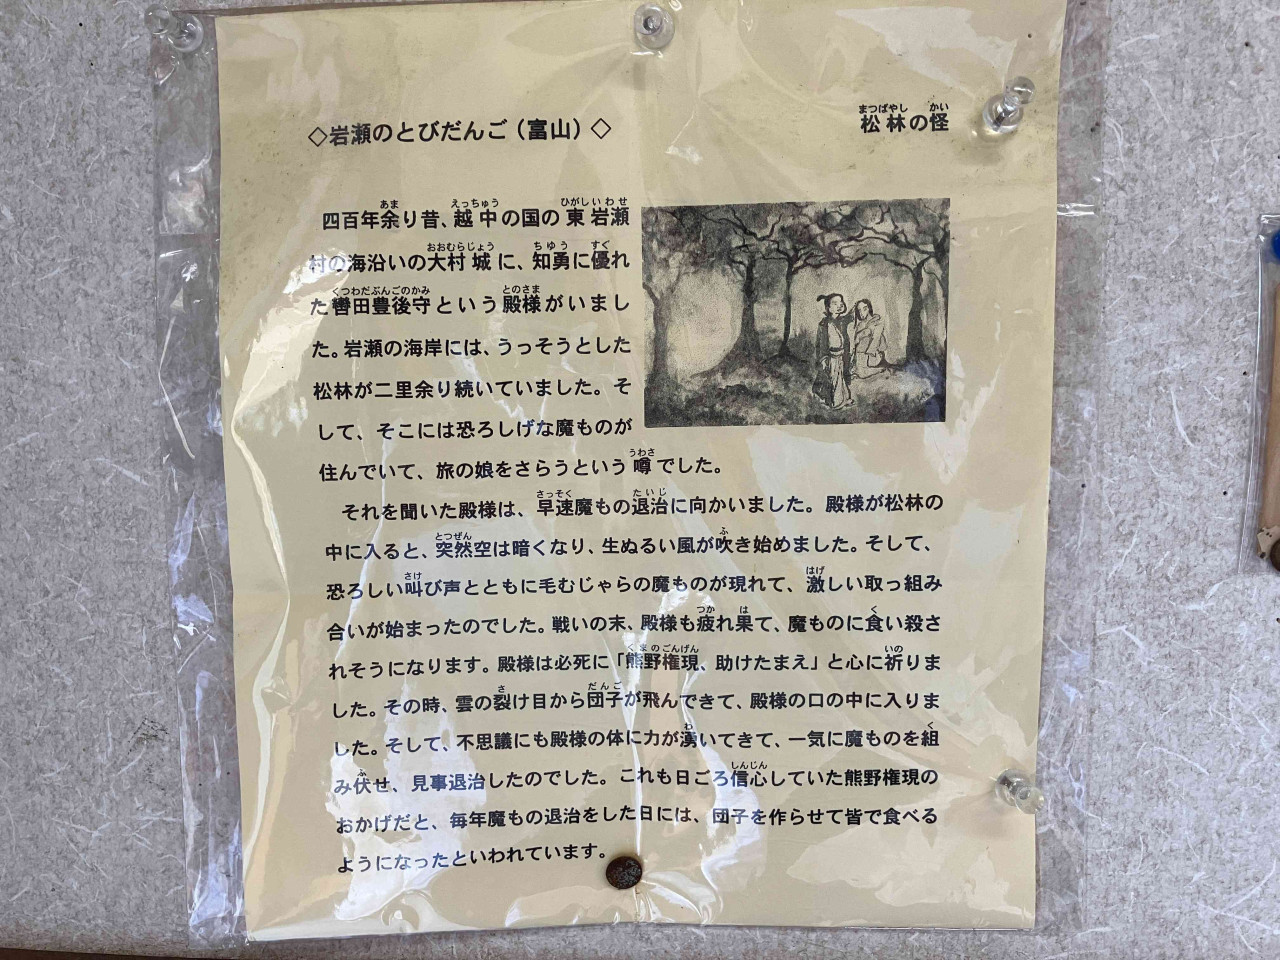 ◇岩瀬のとびだんご（富山）◇
松林の怪
四百年余り昔、越中の国の東岩瀬
村の海沿いの大村城に、知勇に優れ
た轡田豊後守という殿様がいまし
た。岩瀬の海岸には、うっそうとした
松林が二里余り続いていました。そ
して、そこには恐ろしげな魔ものが
住んでいて、旅の娘をさらうという噂でした。
それを聞いた殿様は、早速魔もの退治に向かいました。殿様が松林の
中に入ると、突然空は暗くなり、生ぬるい風が吹き始めました。そして、
恐ろしい叫び声とともに毛むじゃらの魔ものが現れて、激しい取っ組み
合いが始まったのでした。戦いの末、殿様も疲れ果て、魔ものに食い殺さ
れそうになります。殿様は必死に「熊野権現、助けたまえ」と心に祈りま
した。その時、雲の裂け目から団子が飛んできて、殿様の口の中に入りま
した。そして、不思議にも殿様の体に力が湧いてきて、一気に魔ものを組
み伏せ、見事退治したのでした。これも日ごろ信心していた熊野権現の
おかげだと、毎年魔もの退治をした日には、団子を作らせて皆で食べる
ようになったといわれています。